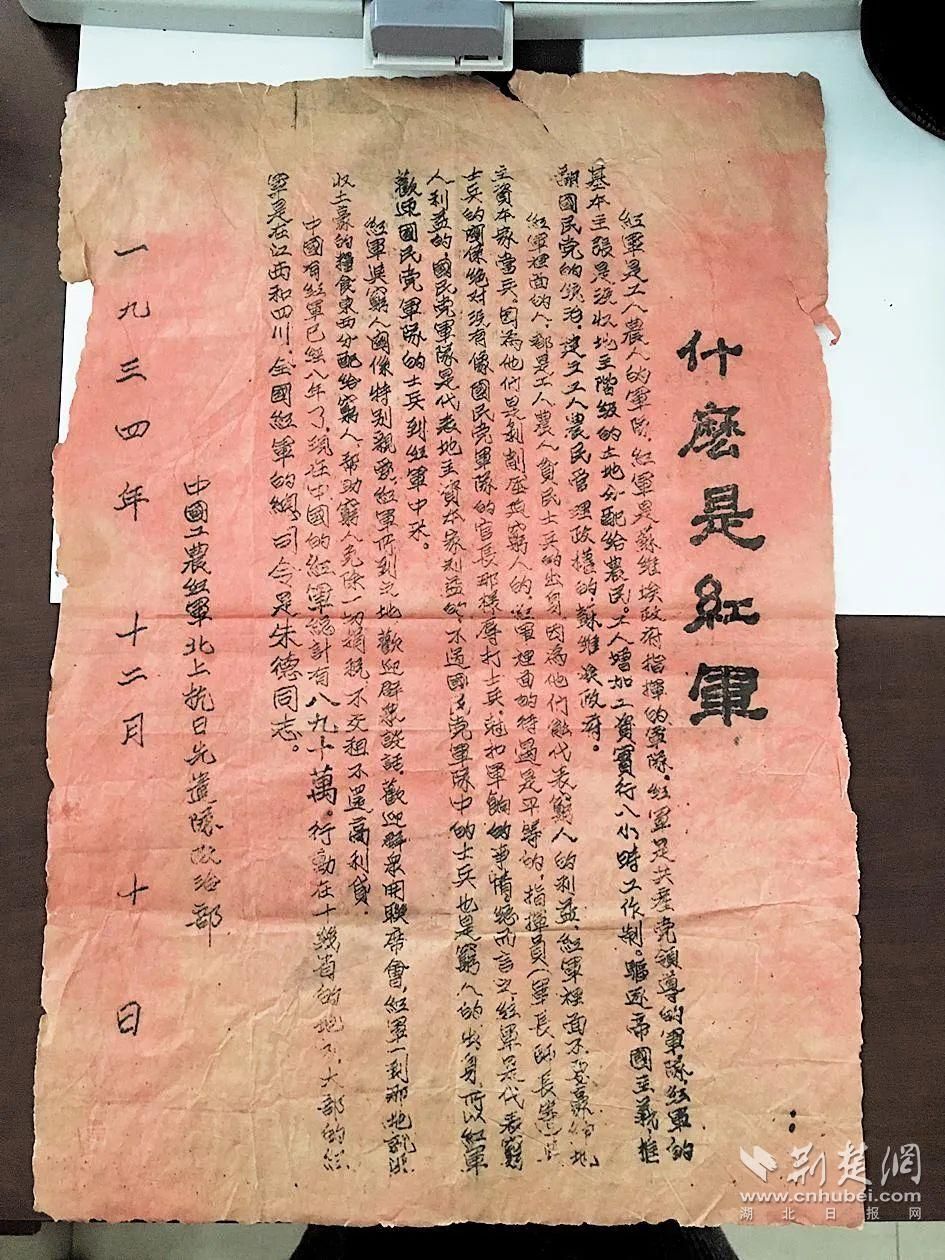 什麽是紅軍
紅軍是工人農人的軍隊，紅軍是蘇維埃政府指揮的軍隊，紅軍是共產党領導的軍隊，紅軍的
基本主張是没收地主階級的土地分配給農民。工人增加工資實行八小時工作制。驅逐帝國主義推
翻國民党的统治，建立工人農民管理政權的，蘇維埃政府。
紅軍裡面的人，都是工人農人貧民士兵的出身，因為他們能代表窮人的利益，紅軍裡面不要豪紳地
主資本家當兵，因為他们是剥削壓迫窮人的，紅軍裡面的待遇是平等的，指揮員（軍長師長
士兵的關係绝对没有像國民党軍隊的官長那樣辱打士兵，尅扣軍餉的事情，總而言之，紅軍是代表窮
人利益的，國民党軍隊是代表地主資本家利益的，不過國民党軍隊中的士兵也是窮人的出身，所以紅軍
歡迎國民党軍隊的士兵到紅軍中来。
紅軍與窮人關係特别親密，紅軍所到之地歡迎群衆談話，歡迎群衆開聯席會，紅軍一到那地就没
收土豪的糧食東西分配給窮人，幫助窮人免除一切捐税不交租不還高利貸。
中國有紅軍已经八年了，現在中國的紅軍總計有八九十萬。行動在十幾省的地方，大部的紅
軍是在江西和四川，全國紅軍的總司令是朱德同志。
中國工農紅軍北上抗日先遣隊政治部
一九三四年十二月十日
荆楚網
www.cnhubei.com
湖北日报网